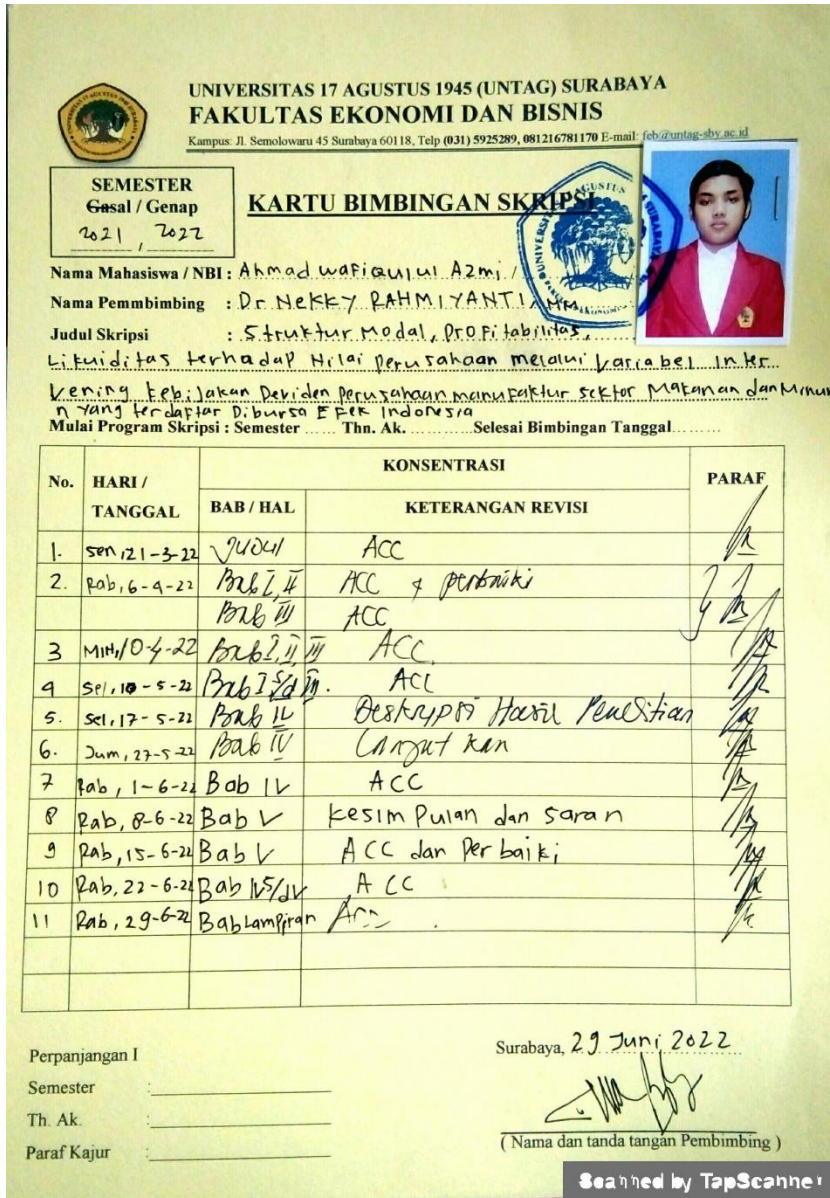 UNIVERSITAS 17 AGUSTUS 1945 (UNTAG) SURABAYA
FAKULTAS EKONOMI DAN BISNIS
Kampus: Jl. Semolowaru 45 Surabaya 60118, Telp (031) 5925289, 081216781170 E-mail: feb@untag-sby.ac.id
SEMESTER
Gasal / Genap
2021 , 2022
KARTU BIMBINGAN SKRIPSI
Nama Mahasiswa / NBI : Ahmad Wafiqulul Azmi /
Nama Pemmbimbing : Dr NEKKY RAHMIYANTI, MM
Judul Skripsi : Struktur Modal, Profitabilitas,
Likuiditas terhadap Nilai perusahaan melalui Variabel Inter
Vening kebijakan Deviden perusahaan manufaktur sektor Makanan dan Minum
n yang terdaftar Dibursa Efek Indonesia
Mulai Program Skripsi : Semester ...... Thn. Ak. ............Selesai Bimbingan Tanggal.........
No. HARI / TANGGAL KONSENTRASI PARAF
BAB / HAL KETERANGAN REVISI
1. Sen, 21-3-22 Judul ACC
2. Rab, 6-4-22 Bab I, II ACC & perbaiki
Bab III ACC
3 MIN, 10-4-22 Bab I, II, III ACC
4 Sel, 10-5-22 Bab I s/d III. ACC
5. Sel, 17-5-22 Bab IV Deskripsi Hasil Penelitian
6. Jum, 27-5-22 Bab IV Lanjutkan
7 Rab, 1-6-22 Bab IV ACC
8 Rab, 8-6-22 Bab V Kesimpulan dan saran
9 Rab, 15-6-22 Bab V ACC dan Perbaiki
10 Rab, 22-6-22 Bab IV s/d V ACC
11 Rab, 29-6-22 Bab Lampiran Acc
Surabaya, 29 Juni 2022
Perpanjangan I
Semester :
Th. Ak. :
Paraf Kajur :
( Nama dan tanda tangan Pembimbing )
Scanned by TapScanner